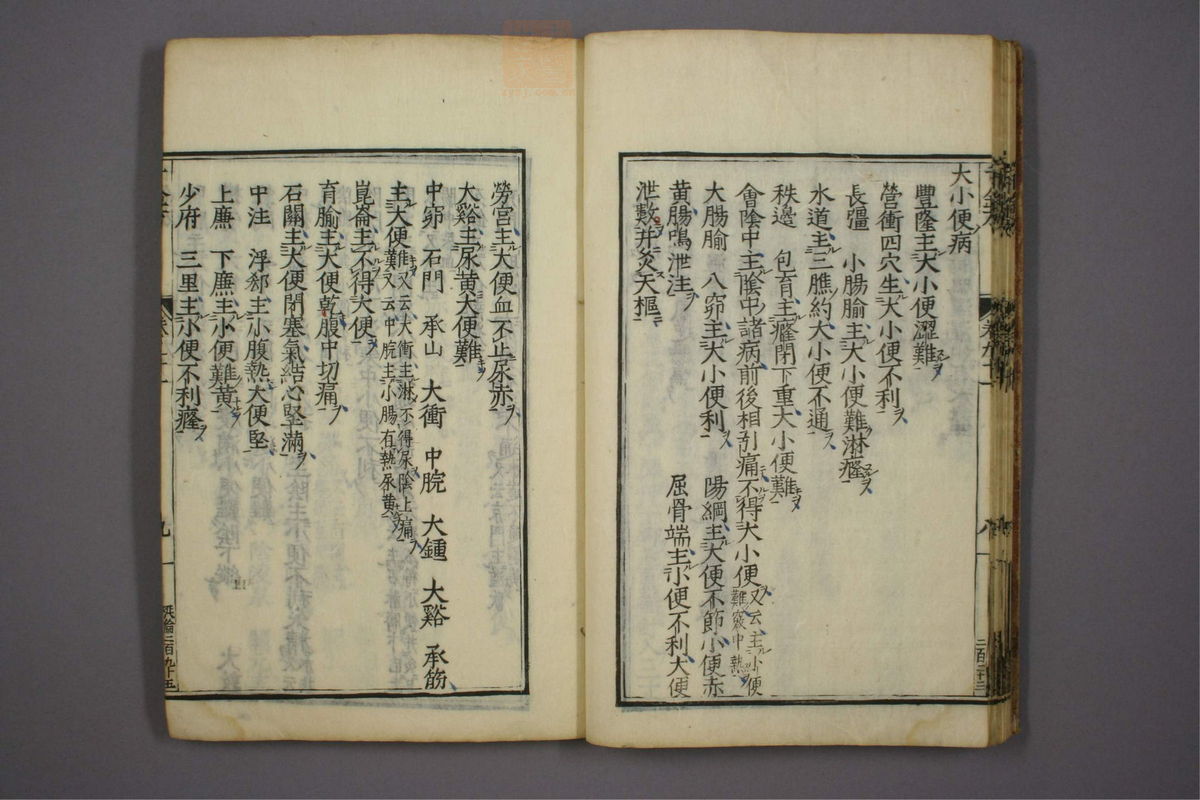 大小便病
豐隆主大小便澀難
營衝四穴主大小便不利
長彊 小腸腧主大小便難淋癃
水道主三膲約大小便不通
秩邊 包肓主癃閉下重大小便難
會陰中主陰中諸病前後相引痛不得大小便又云主小便難竅中熱
大腸腧 八窌主大小便利 陽綱主大便不節小便赤
黃腸鳴泄注 屈骨端主小便不利大便
泄數并灸天樞
勞宮主大便血不止尿赤
大谿主尿黃大便難
中窌 石門 承山 大衝 中脘 大鍾 大谿 承筋
主大便難又云大衝主淋不得尿陰上痛又云中脘主小腸有熱尿黃
崑崙主不得大便
肓腧主大便乾腹中切痛
石關主大便閉塞氣結心堅滿
中注 浮郄主小腹熱大便堅
上廉 下廉主小便難黃
少府 三里主小便不利癃